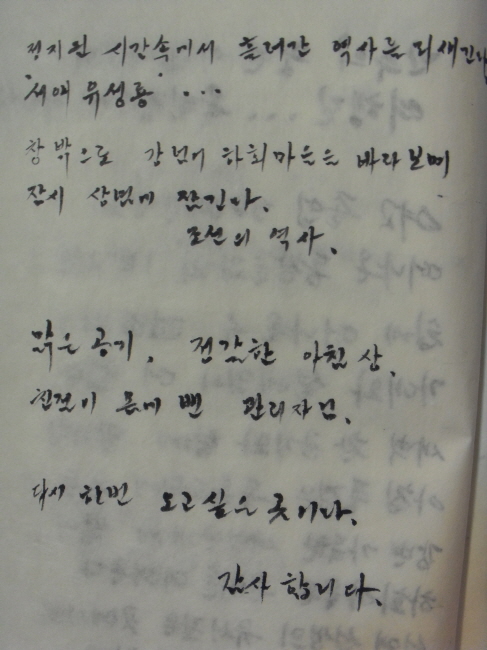 정지된 시간속에서 흘러간 역사를 되새긴다
"서애 유성룡" ...
창밖으로 강건너 하회마을을 바라보며
잠시 상념에 잠긴다.
조선의 역사.
맑은 공기, 정갈한 아침상,
친절이 몸에 밴 관리자님,
다시 한번 오고싶은 곳이다.
감사합니다.